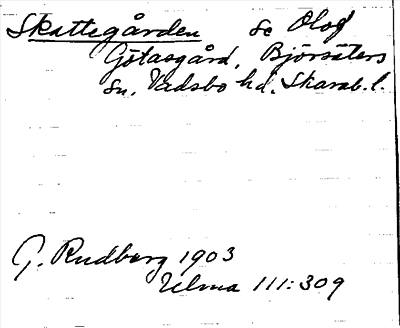 Skattegården se Olof
Götasgård, Björsäters
sn, Vadsbo hd, Skarab. l.
G. Rudberg 1903
Ulma 111:309